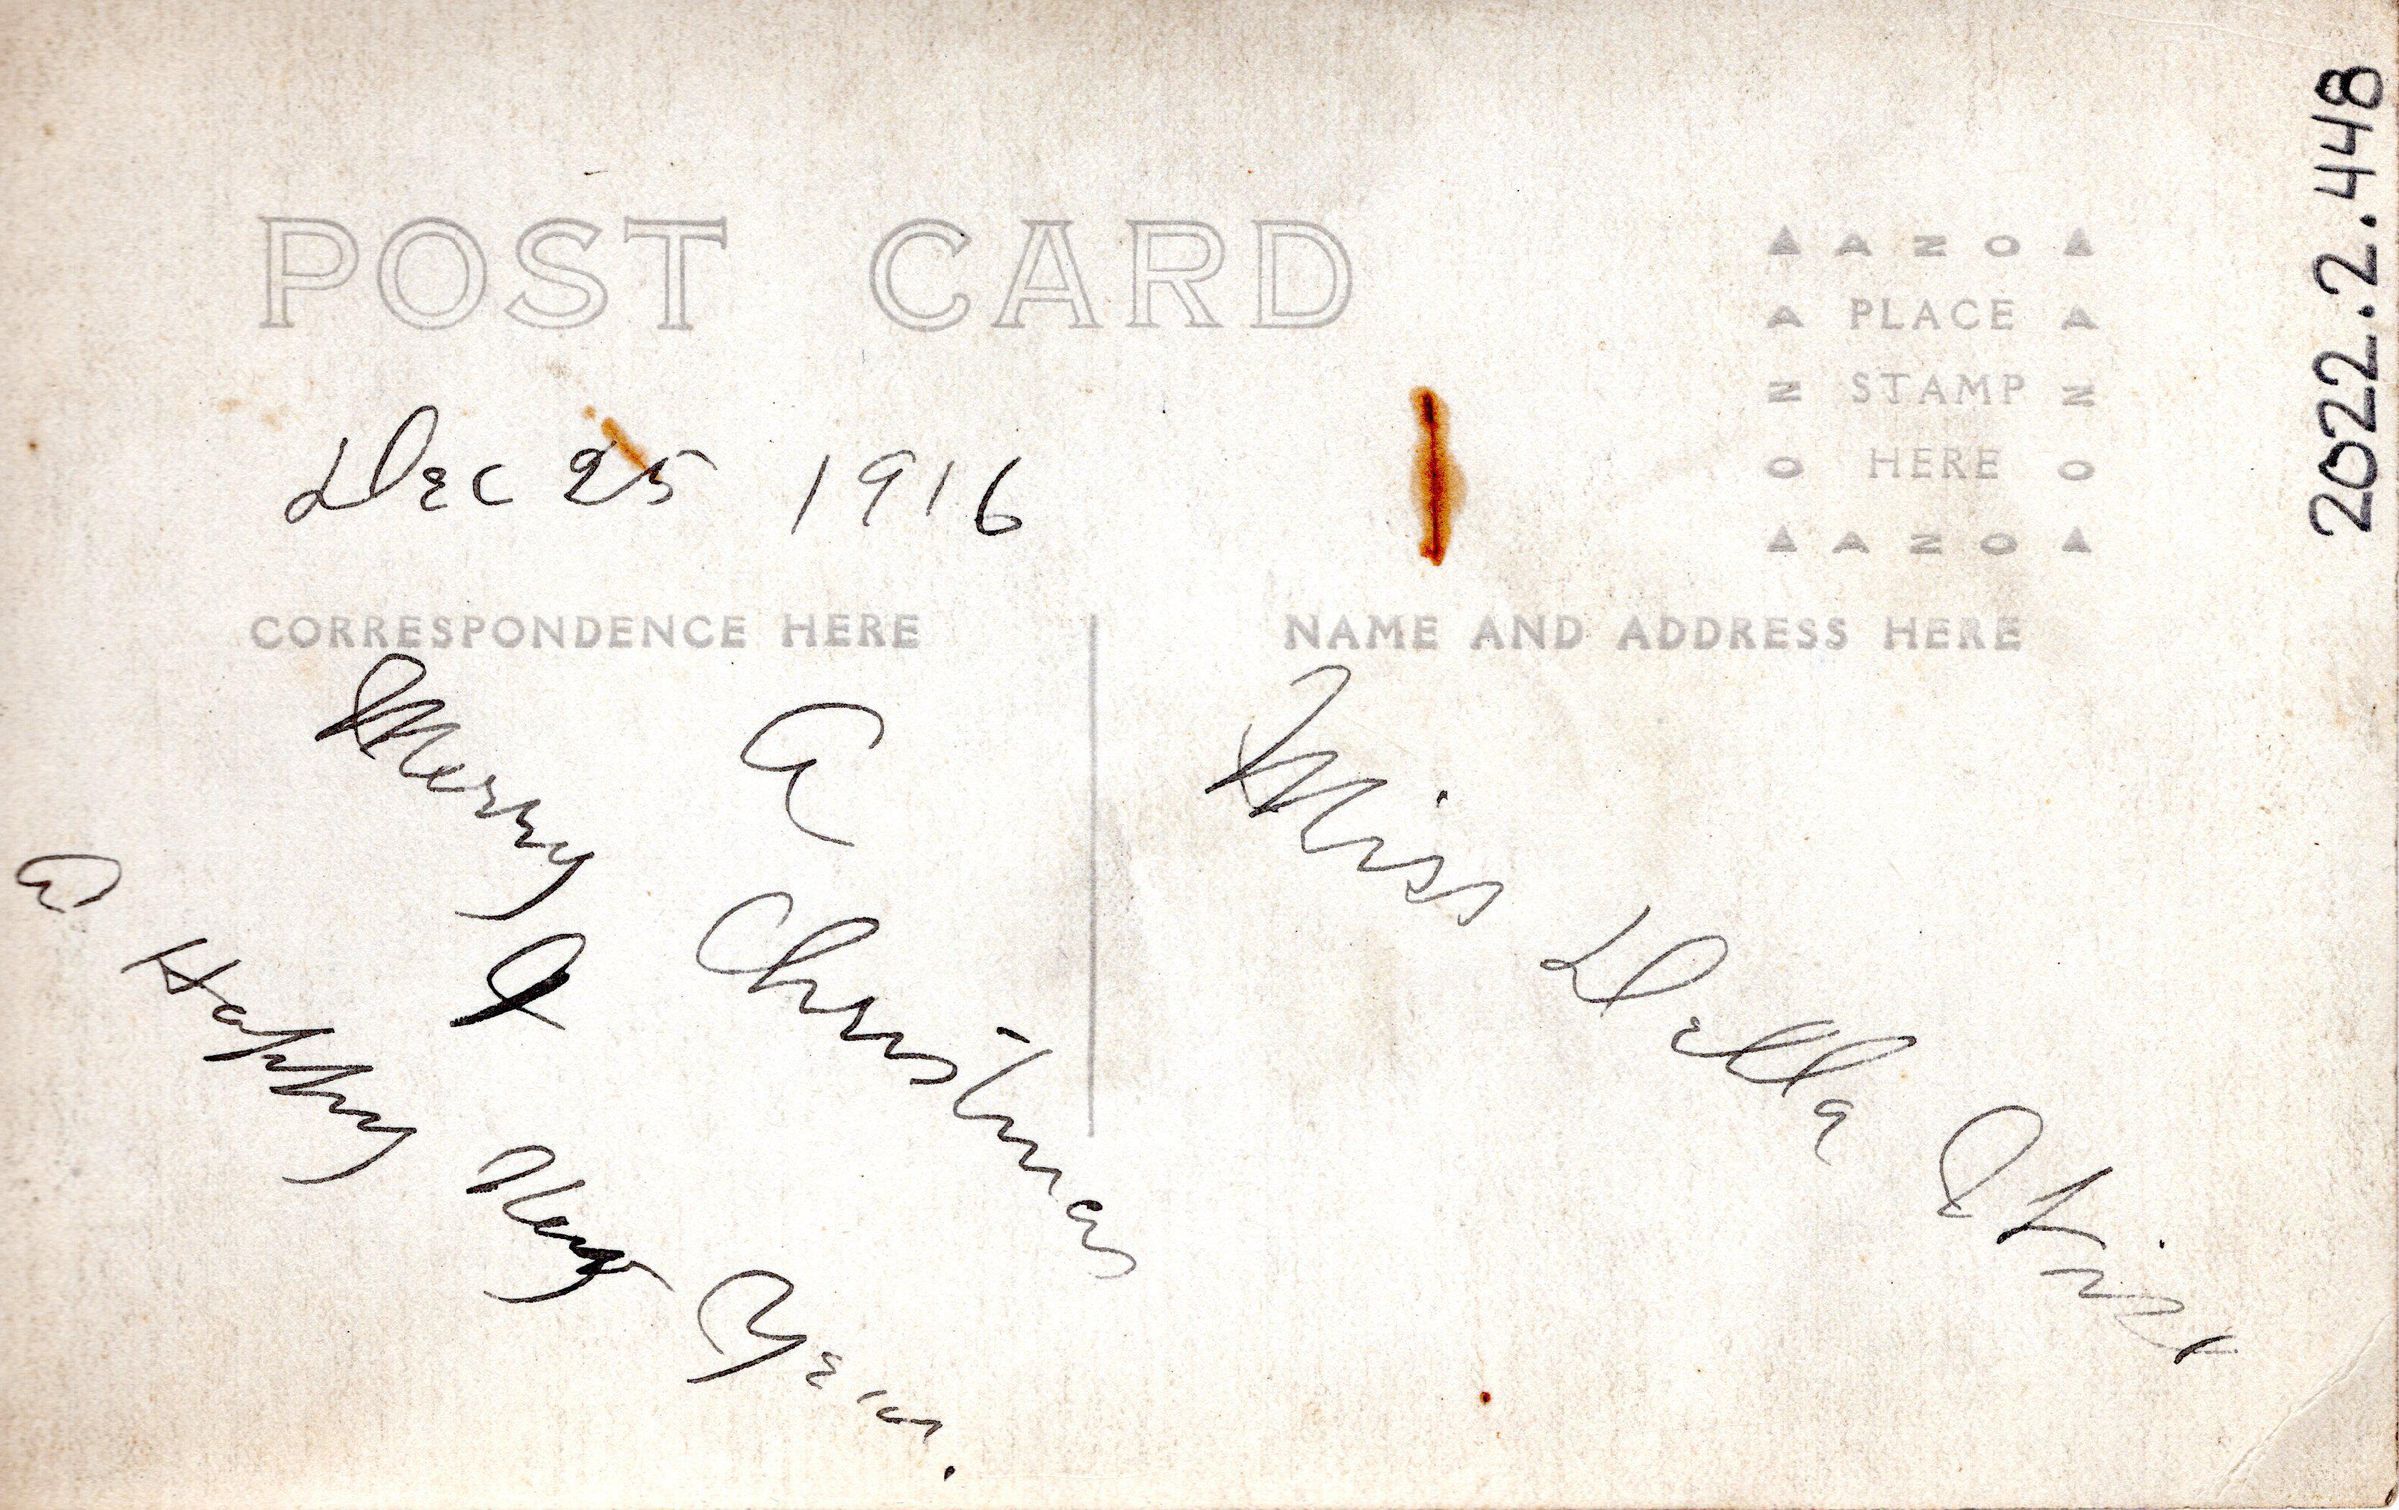 POST CARD
AZO
A PLACE A
N STAMP N
O HERE O
AZO
2022.2.448
Dec 25 1916
CORRESPONDENCE HERE
NAME AND ADDRESS HERE
A
Merry Christmas
&
a Happy New Year.
Miss Della